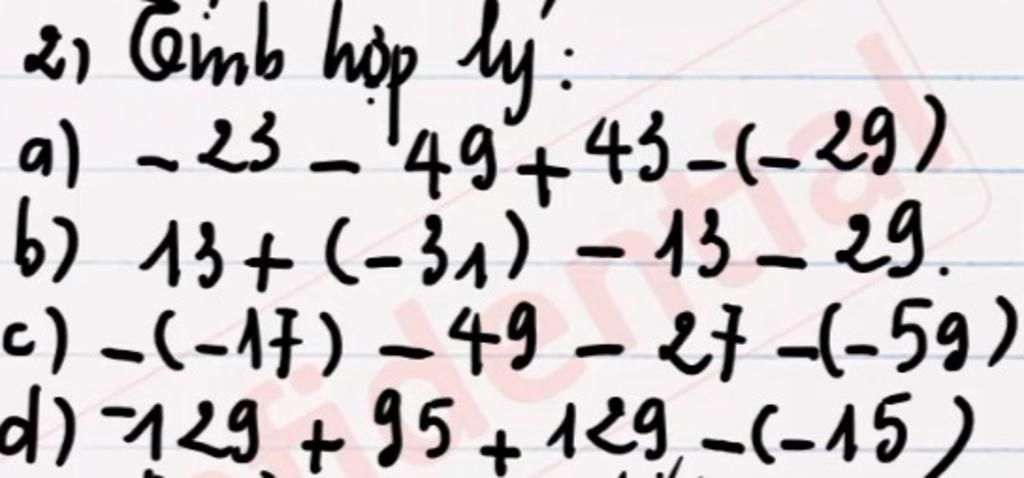 2, Tính hợp lý:
a) - 23 - 49 + 43 - (- 29)
b) 13 + (- 31) - 13 - 29.
c) - (- 17) - 49 - 27 - (- 59)
d) - 129 + 95 + 129 - (- 15)
fidential